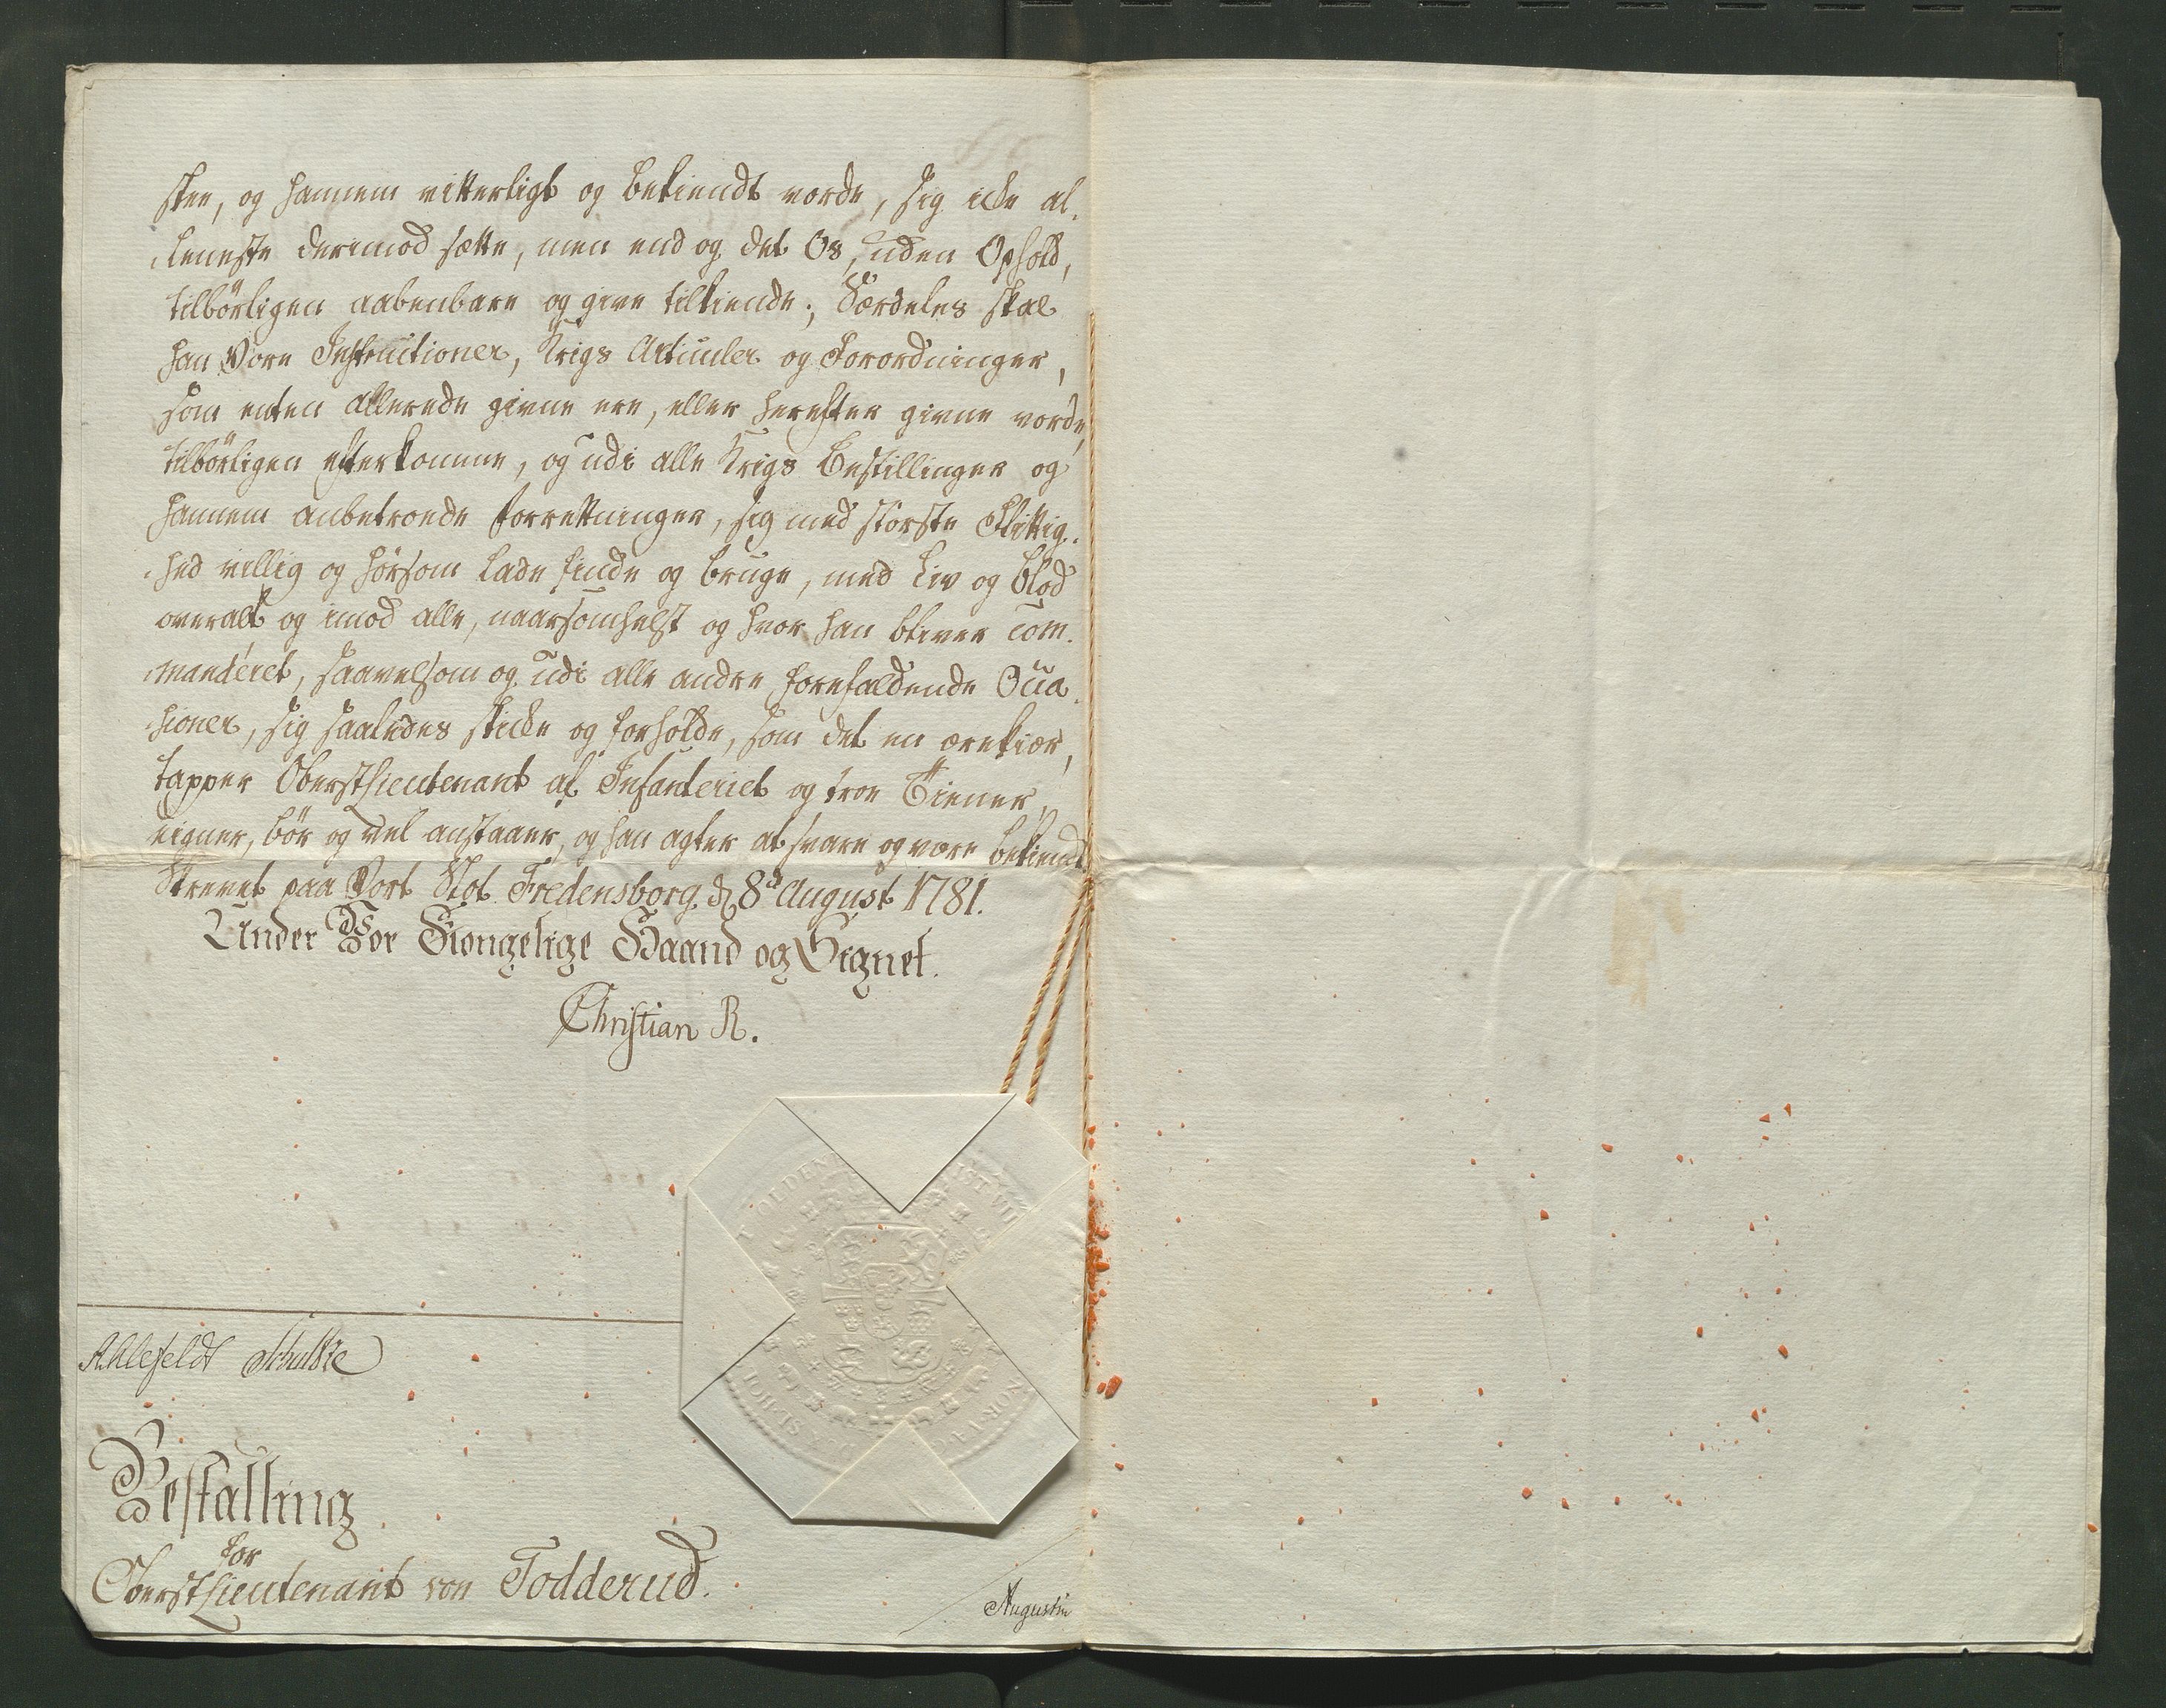 skee, og hannem vitterligt og bekiendt vorde, sig icke al-
leneste derimod sætte, men end og det Os, uden Ophold,
tilbörligen aabenbare og give tilkiende; Særdeles skal
han Vore Instructioner, Krigs Articuler og Forordninger,
som enten allerede givne ere, eller herefter givne vorde,
tilbörligen efterkomme, og udi alle Krigs Bestillinger og
hannem anbetroede forretninger, sig med störste Flittig-
hed villig og hörsom lade finde og bruge, med Liv og Blod
overalt og imod alle, naarsomhelst og hvor han bliver com-
manderet, saavelsom og udi alle andre forefaldende Occa-
sioner, sig saaledes skicke og forholde, som det en ærekiær,
tapper OberstLieutenant af Infanteriet og troe Tiener,
eigner, bör og vel anstaaer, og han agter at svare og være bekiendt.
Skrevet paa Vort Slot Fredensborg, d. 8d August 1781.
Under Vor Kongelige Haand og Signet.
Christian R.
OLDEN
NOR V G
SL HOL
Ahlefeldt Schultze
Bestalling
for
OberstLieutenant von Todderud.
Augustin